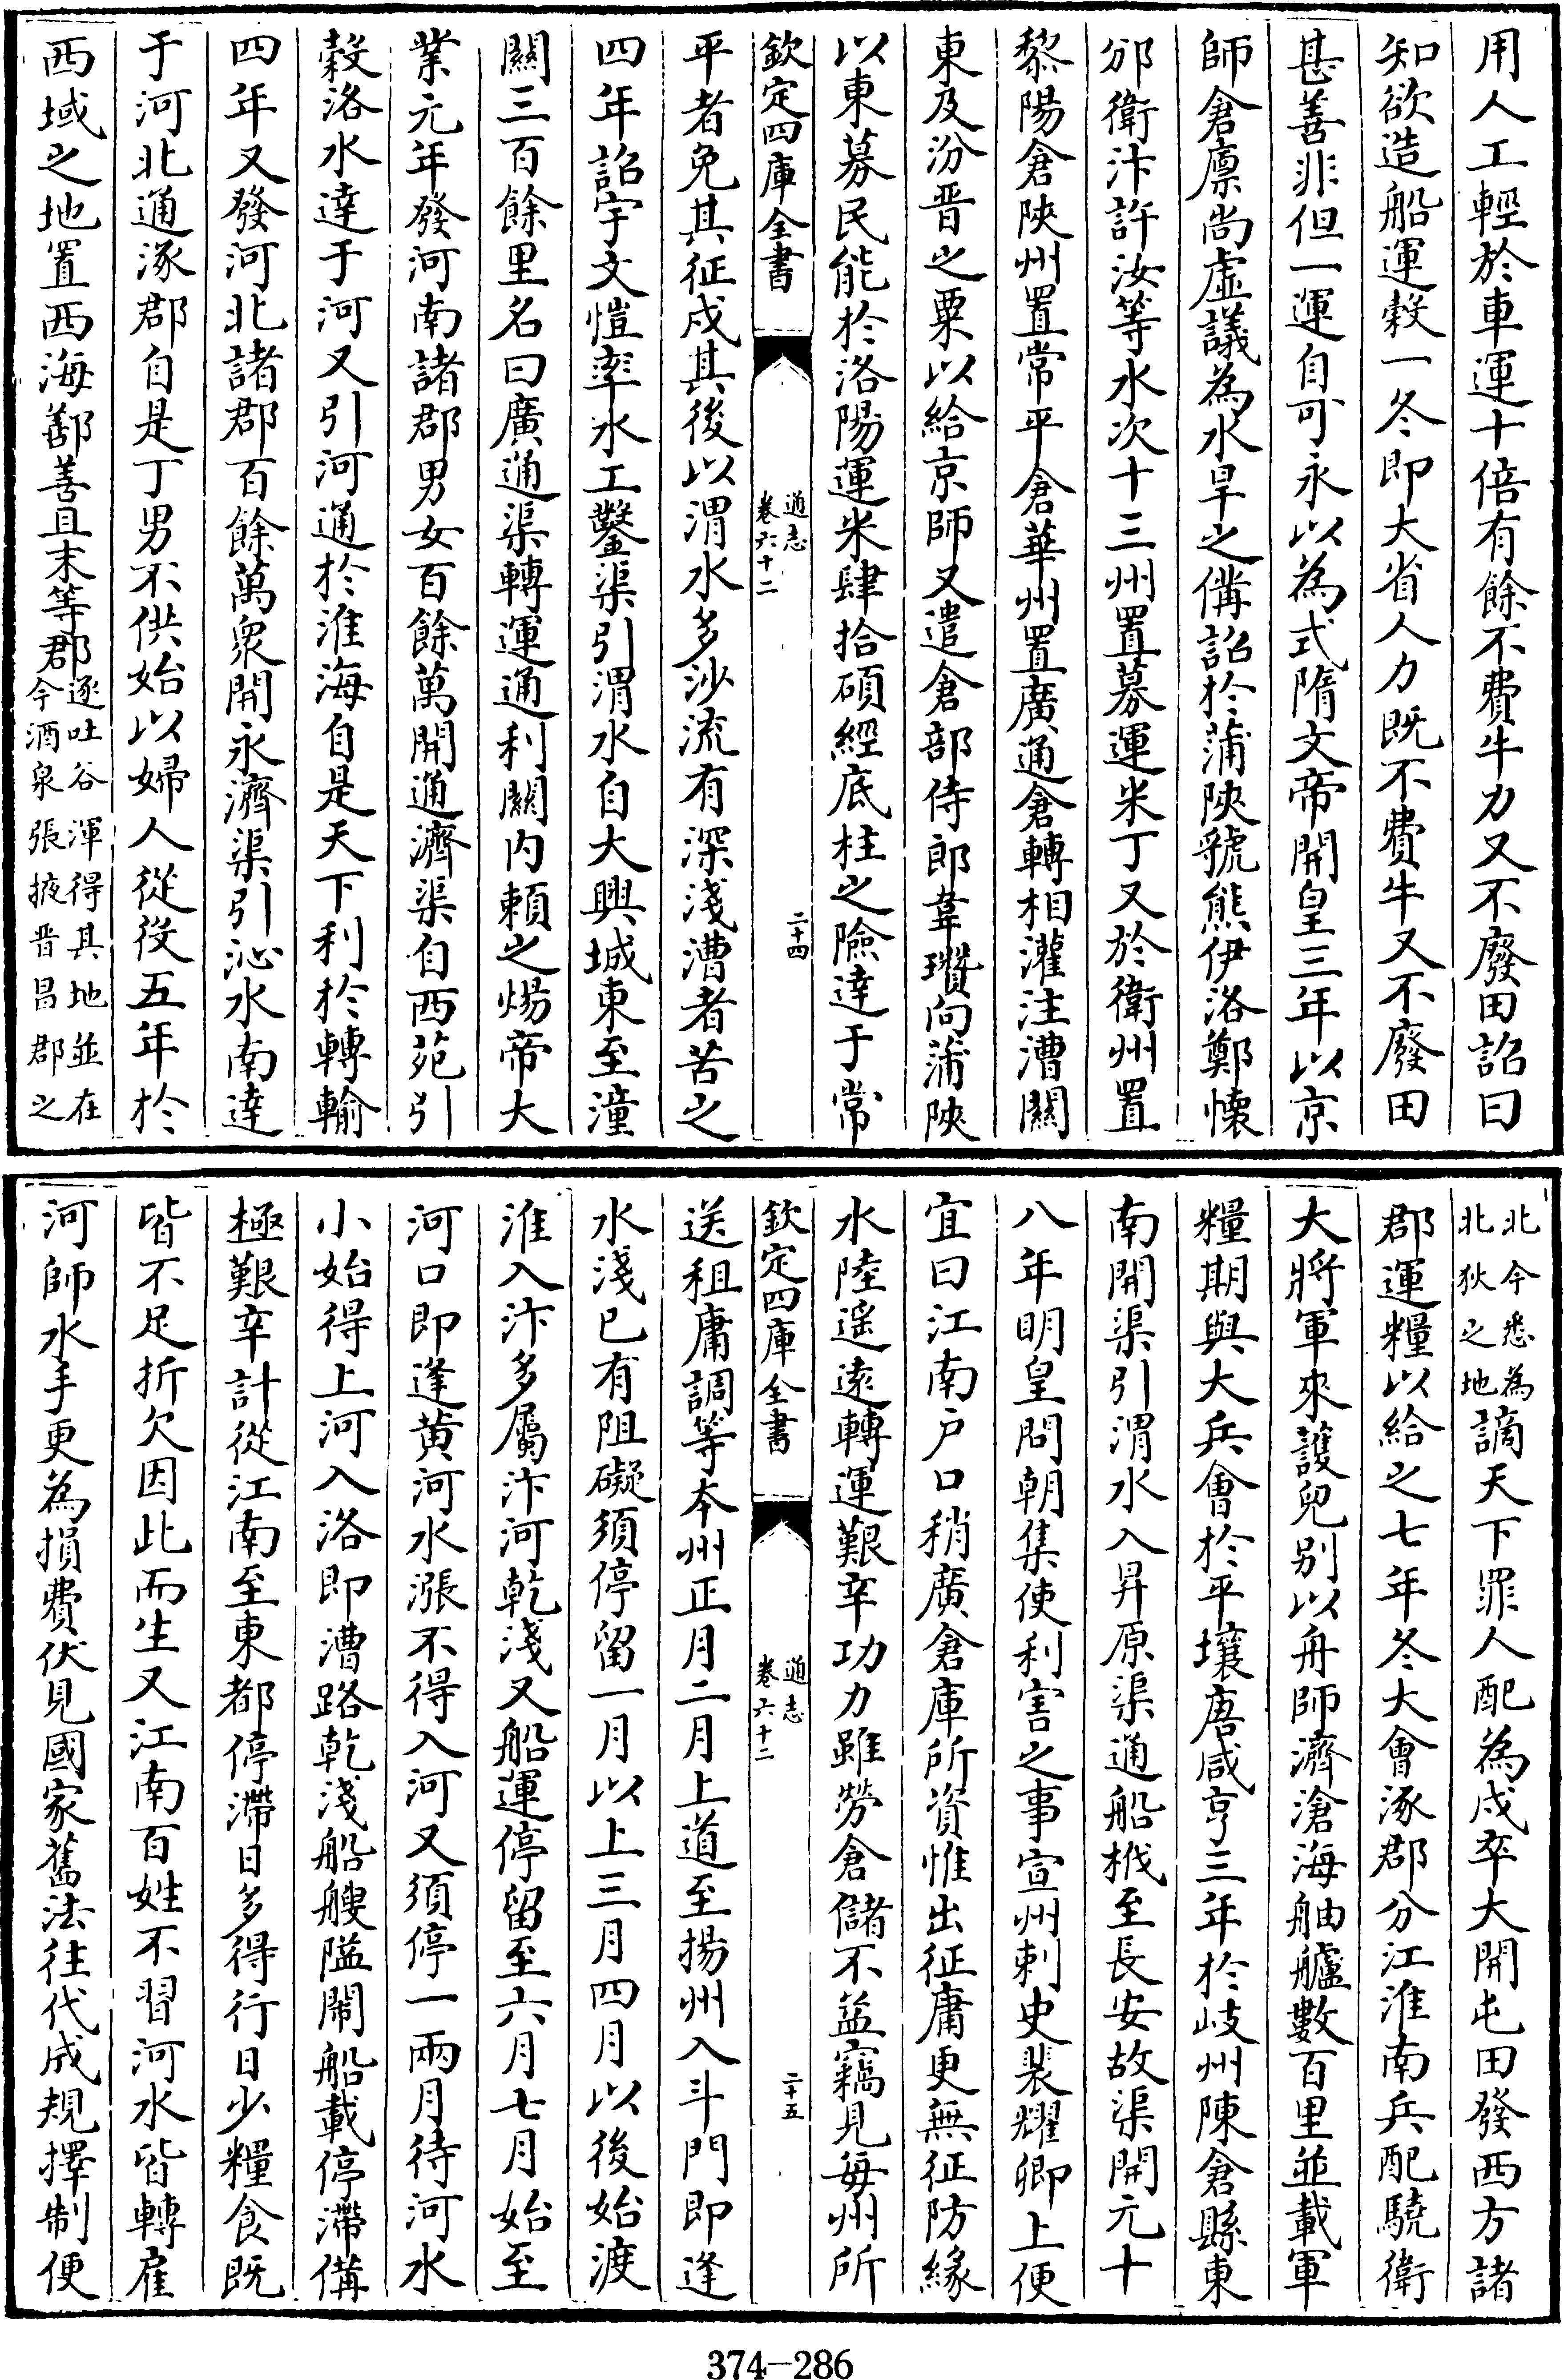 用人工輕於車運十倍有餘不費牛力又不廢田詔曰
知欲造船運穀一冬即大省人力既不費牛又不廢田
甚善非但一運自可永以為式隋文帝開皇三年以京
師倉廩尚虛議為水旱之備詔於蒲陝虢熊伊洛鄭懷
邠衛汴許汝等水次十三州置募運米丁又於衛州置
黎陽倉陝州置常平倉華州置廣通倉轉相灌注漕關
東及汾晋之粟以給京師又遣倉部侍郎韋瓚向蒲陝
以東募民能於洛陽運米肆拾碩經底柱之險達于常
欽定四庫全書
通志
卷六十二
二十四
平者免其征戍其後以渭水多沙流有深淺漕者苦之
四年詔宇文愷率水工鑿渠引渭水自大興城東至潼
關三百餘里名曰廣通渠轉運通利關内賴之煬帝大
業元年發河南諸郡男女百餘萬開通濟渠自西苑引
穀洛水達于河又引河通於淮海自是天下利於轉輸
四年又發河北諸郡百餘萬衆開永濟渠引沁水南達
于河北通涿郡自是丁男不供始以婦人從役五年於
西域之地置西海鄯善且末等郡逐吐谷渾得其地並在
今酒泉張掖晋昌郡之
北今悉為
北狄之地謫天下罪人配為戍卒大開屯田發西方諸
郡運糧以給之七年冬大會涿郡分江淮南兵配驍衛
大將軍來護兒别以舟師濟滄海舳艫數百里並載軍
糧期與大兵會於平壤唐咸亨三年於岐州陳倉縣東
南開渠引渭水入昇原渠通船栰至長安故渠開元十
八年明皇問朝集使利害之事宣州刺史裴耀卿上便
宜曰江南户口稍廣倉庫所資惟出征庸更無征防緣
水陸遥遠轉運艱辛功力雖勞倉儲不益竊見每州所
欽定四庫全書
通志
卷六十二
二十五
送租庸調等本州正月二月上道至揚州入斗門即逢
水淺已有阻礙須停留一月以上三月四月以後始渡
淮入汴多屬汴河乾淺又船運停留至六月七月始至
河口即逢黄河水漲不得入河又須停一兩月待河水
小始得上河入洛即漕路乾淺船艘隘閙船載停滯備
極艱辛計從江南至東都停滯日多得行日少糧食既
皆不足折欠因此而生又江南百姓不習河水皆轉雇
河師水手更為損費伏見國家舊法往代成規擇制便
374-286